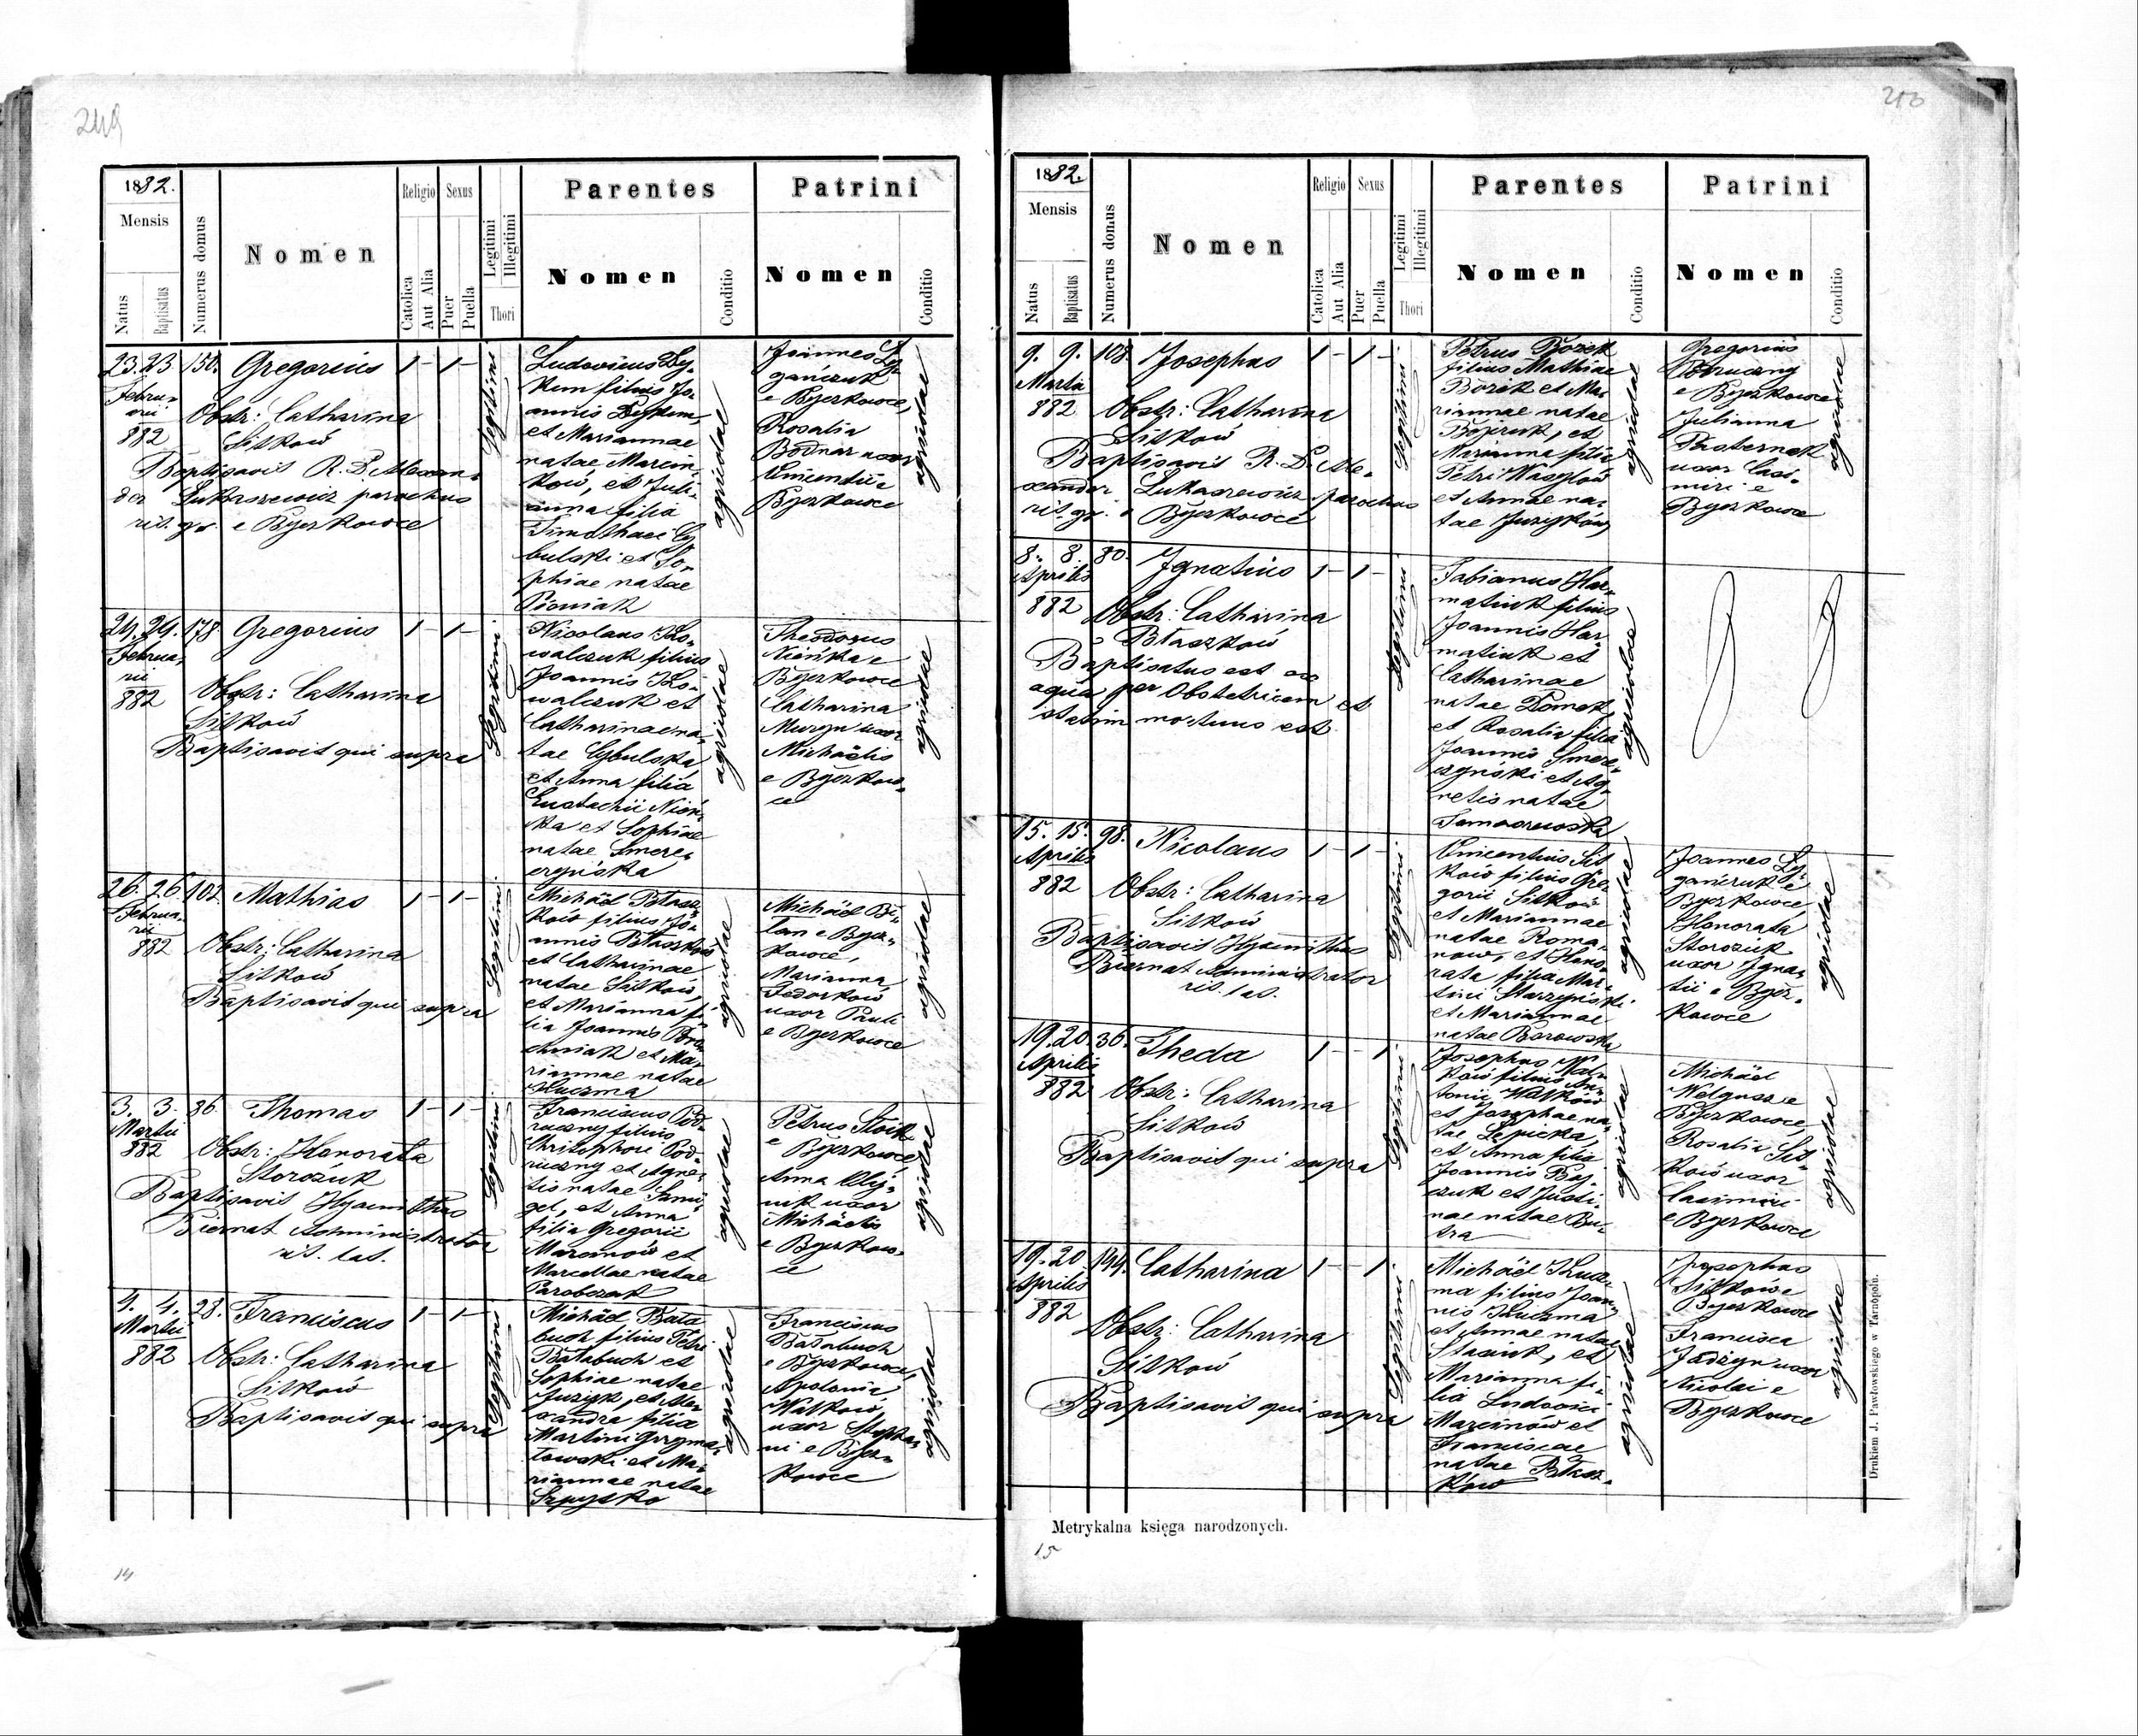 249
1882.
Mensis
Natus
Baptisatus
Numerus domus
Nomen
Religio
Catolica
Aut Alia
Sexus
Puer
Puella
Legitimi
Illegitimi
Thori
Parentes
Nomen
Conditio
Patrini
Nomen
Conditio
23. 23. 150. Gregorius 1 - 1 -
Febru-
arii
882
Obstr: Catharina
Sitków
Baptisavit R. D. Alexan-
der Lukaszewicz parochus
rit. gr. e Byczkowce
Legitimi
Ludovicus
filius Jo-
annis
et Mariannae
natae Marcin-
ków, et Juli-
anna filia
Timothaei Cy-
bulski et So-
phiae natae
Pioniak
agricolae
Joannes Ły-
gańczuk
e Byczkowce,
Rosalia
Bodnar uxor
Vincentii e
Byczkowce
agricolae
24. 24. 178. Gregorius 1 - 1 -
Februa-
rii
882
Obstr: Catharina
Sitków
Baptisavit qui supra
Legitimi
Nicolaus Ko-
walczuk filius
Joannis Ko-
walczuk et
Catharinae na-
tae Cybulska,
et Anna filia
Eustachii Nień-
ka et Sophiae
natae Smere-
czyńska
agricolae
Theodorus
Nieńka e
Byczkowce
Catharina
Muryn uxor
Michaëlis
e Byczkow-
ce
agricolae
26. 26. 102. Mathias 1 - 1 -
Februa-
rii
882
Obstr: Catharina
Sitków
Baptisavit qui supra
Legitimi
Michaël Ptasz-
ków filius Jo-
annis Ptaszków
et Catharinae
natae Sitków,
et Marianna fi-
lia Joannis
et Ma-
riannae natae
Kuczma
agricolae
Michaël Bi-
lan e Bycz-
kowce,
Marianna
Fedorków
uxor Pauli
e Byczkowce
agricolae
3. 3. 86. Thomas 1 - 1 -
Martii
882
Obstr: Honorata
Storożuk
Baptisavit Hyacinthus
Biernat Administrator
rit. lat.
Legitimi
Franciscus Pod-
ruczny filius
Christophori Pod-
ruczny et Agne-
tis natae Śmi-
gel, et Anna
filia Gregorii
Maronów et
Marcellae natae
Parobczak
agricolae
Petrus Stoik
e Byczkowce,
Anna Olij-
nik uxor
Michaëlis
e Byczkow-
ce
agricolae
4. 4. 28. Franciscus 1 - 1 -
Martii
882
Obstr: Catharina
Sitków
Baptisavit qui supra
Legitimi
Michaël Bała-
buch filius Petri
Bałabuch et
Sophiae natae
Juzyk, et Ale-
xandra filia
Martini Grzyma-
łowski et Ma-
riannae natae
Szpytko
agricolae
Franciscus
Bałabuch
e Byczkowce,
Apolonia
Wałków
uxor Stepha-
ni e Bycz-
kowce
agricolae
14
1882.
Mensis
Natus
Baptisatus
Numerus domus
Nomen
Religio
Catolica
Aut Alia
Sexus
Puer
Puella
Legitimi
Illegitimi
Thori
Parentes
Nomen
Conditio
Patrini
Nomen
Conditio
9. 9. 108. Josephus 1 - 1 -
Martii
882
Obstr: Catharina
Sitków
Baptisavit R. D. Ale-
xander Lukaszewicz parochus
rit. gr. e Byczkowce
Legitimi
Petrus Bożek
filius Mathiae
Bożek et Ma-
riannae natae
Bojczuk, et
Marianna filia
Petri Wasylów
et Annae na-
tae Juzyków
agricolae
Gregorius
Podruczny
e Byczkowce
Julianna
Pasternak
uxor Casi-
miri e
Byczkowce
agricolae
8. 8. 80. Ignatius 1 - 1 -
Aprilis
882
Obstr: Catharina
Ptaszków
Baptisatus est ex
aqua per Obstetricem et
statim mortuus est
Legitimi
Fabianus Har-
matiuk filius
Joannis Har-
matiuk et
Catharinae
natae Domek,
et Rosalia filia
Joannis Smere-
czyński et Ag-
netis natae
Tomaszewska
agricolae
15. 15. 98. Nicolaus 1 - 1 -
Aprilis
882
Obstr: Catharina
Sitków
Baptisavit Hyacinthus
Biernat Administrator
rit. lat.
Legitimi
Vincentius Sit-
ków filius Gre-
gorii Sitków
et Mariannae
natae Roma-
now, et Hono-
rata filia Mar-
tini Starzyński
et Mariannae
natae Borowska
agricolae
Joannes Ły-
gańczuk e
Byczkowce,
Honorata
Storożuk
uxor Igna-
tii e Bycz-
kowce
agricolae
19. 20. 36. Theda 1 - - 1
Aprilis
882
Obstr: Catharina
Sitków
Baptisavit qui supra
Legitimi
Josephus Wał-
ków filius An-
tonii Wałków
et Josephae na-
tae Lepicka,
et Anna filia
Joannis Boj-
czuk et Justi-
nae natae Bu-
tra
agricolae
Michaël
Welgusz e
Byczkowce,
Rosalia Sit-
ków uxor
Casimiri
e Byczkowce
agricolae
19. 20. 194. Catharina 1 - - 1
Aprilis
882
Obstr: Catharina
Sitków
Baptisavit qui supra
Legitimi
Michaël Kucz-
ma filius Joan-
nis Kuczma
et Annae natae
Staciuk, et
Marianna fi-
lia Ludovici
Marcinów et
Franciscae
natae Ptasz-
ków
agricolae
Josephus
Sitków e
Byczkowce
Francisca
Jadżyn uxor
Nicolai e
Byczkowce
agricolae
Metrykalna księga narodzonych.
Drukiem J. Pawłowskiego w Tarnopolu.
15